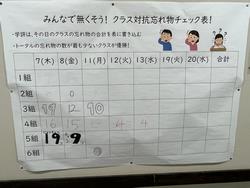 みんなで無くそう! クラス対抗忘れ物チェック表!
・学評は、その日のクラスの忘れ物の合計を表に書き込む
・トータルの忘れ物の数が最も少ないクラスが優勝!
7(木) 8(金) 11(月) 12(火) 13(水) 19(火) 20(水) 合計
1組
2組 0
3組 17 12 10
4組 16 15 4 4
5組 19 9
6組